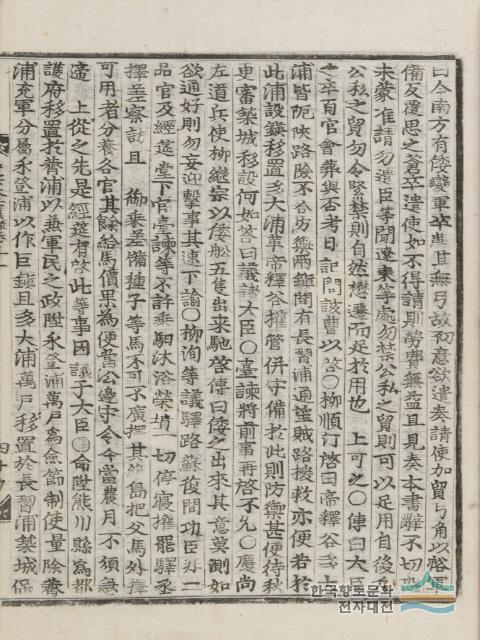 曰今南方有倭變軍卒患其無弓故初意欲遣奏請使加貿弓角以俗軍
備反覆思之蒼卒遣使如不得請則勞費無益且見奏本書辭不切
未蒙准請勿遣臣等聞遼東等處勿禁公私之貿則可以足用自後
公私之貿勿令緊禁則自然懋遷而足於用也 上可之○傳曰大臣
之卒百官會葬與否考日記問該曹以啓○柳順汀啓曰帝釋谷
浦皆阨陜路險不合防禦兩鎭間有長習浦通望賊路援救亦便若於
此浦設鎭移置多大浦萬戶帝釋谷權管併守備於此則防禦甚便待秋
更審築城移設何如答曰議諸大臣○臺諫將前事再啓不允○慶尙
左道兵使柳繼宗以倭船五隻出來馳啓傳曰倭之出來其意莫測如
欲通好則勿妄迎擊事其速下諭○柳洵等議驛路蘇復間功臣
品官及經筵堂下官臺諫等不許乘馹沐浴榮墳一切停寢權罷驛丞
擇差察訪且 御乘差備種子等馬不可不廣擇其島把父馬外擇
可用者分養各官其餘給馬價果為便當沿邊守令今當農月不須急
遞 上從之先是經筵有啓此等事因議于大臣○命陞熊川縣爲都
護府移置於薺浦以兼軍民之政陞永登浦萬戶爲僉節制使量除薺
浦充軍分屬永登浦以作巨鎭且多大浦萬戶移置於長習浦築城保
四十九
한국향토문화
전자대전